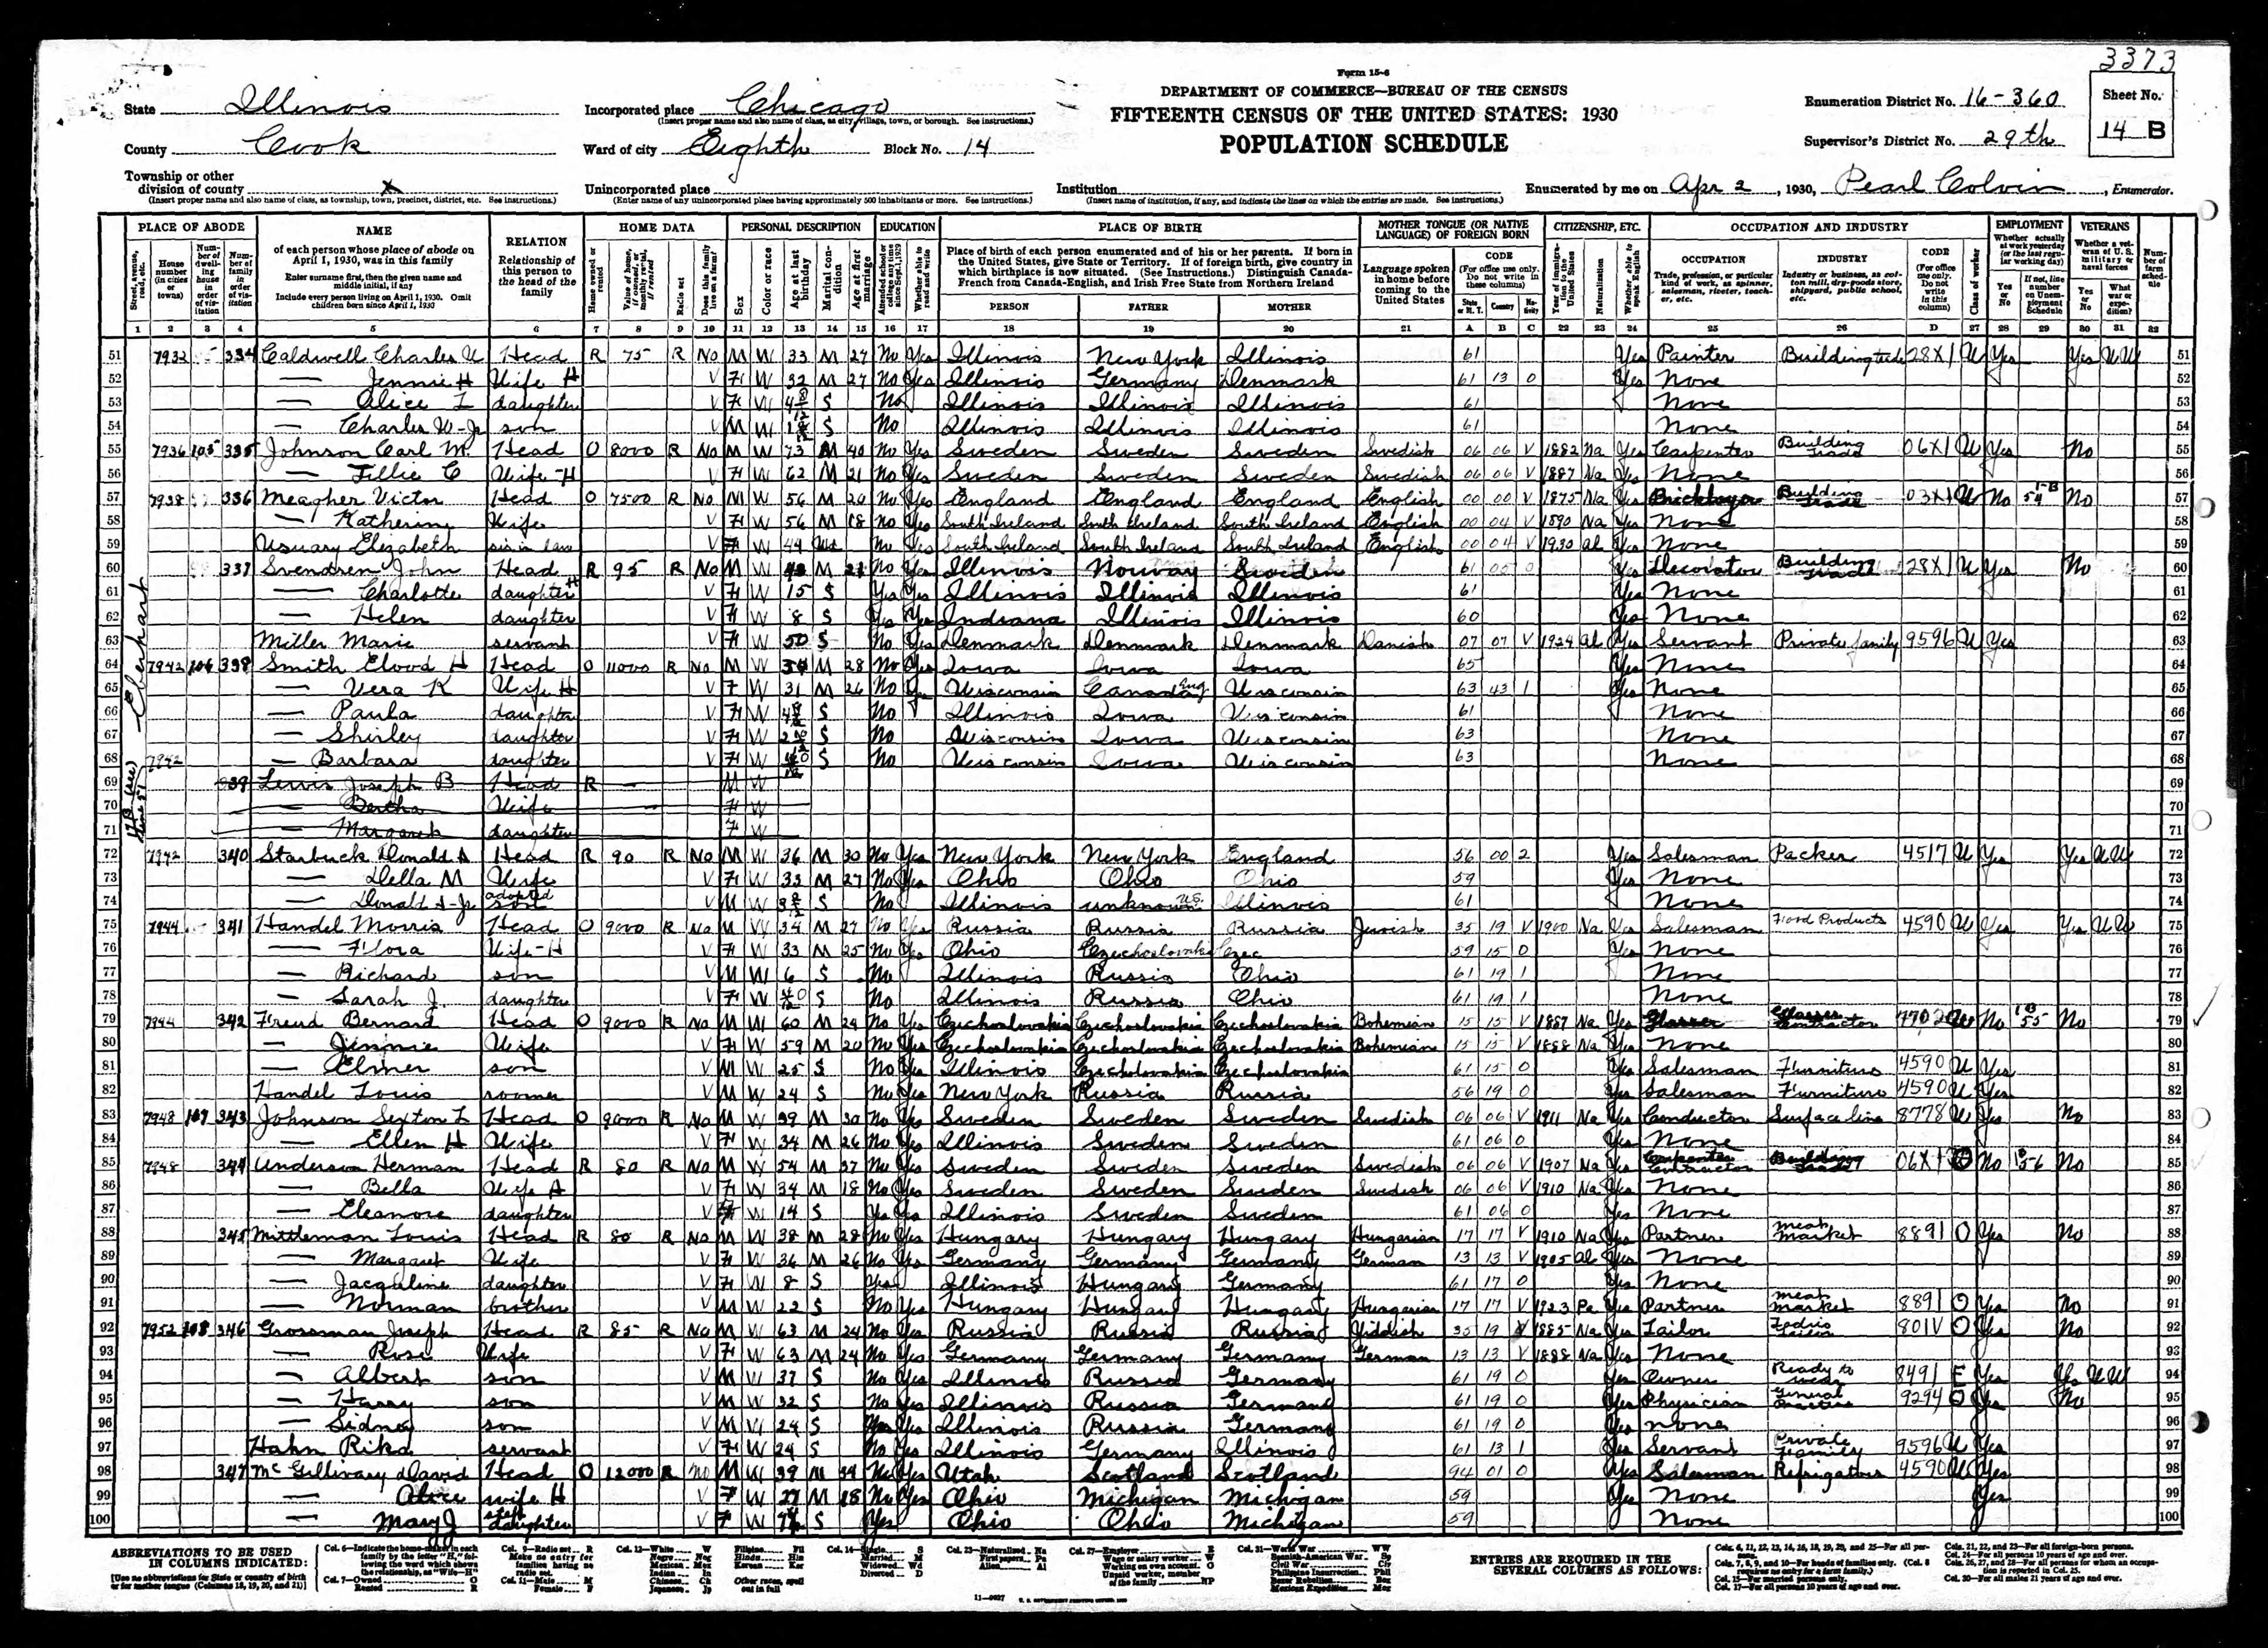 3373
Form 15-6
DEPARTMENT OF COMMERCE—BUREAU OF THE CENSUS
FIFTEENTH CENSUS OF THE UNITED STATES: 1930
POPULATION SCHEDULE
State Illinois
County Cook
Township or other division of county x
(Insert proper name and also name of class, as township, town, precinct, district, etc. See instructions.)
Incorporated place Chicago
(Insert proper name and also name of class, as city, village, town, or borough. See instructions.)
Ward of city Eighth Block No. 14
Unincorporated place
(Enter name of any unincorporated place having approximately 500 inhabitants or more. See instructions.)
Institution
(Insert name of institution, if any, and indicate the lines on which the entries are made. See instructions.)
Enumeration District No. 16-360
Supervisor's District No. 29th
Sheet No. 14 B
Enumerated by me on Apr 2, 1930, Pearl Colvin, Enumerator.
PLACE OF ABODE NAME RELATION HOME DATA PERSONAL DESCRIPTION EDUCATION PLACE OF BIRTH MOTHER TONGUE (OR NATIVE LANGUAGE) OF FOREIGN BORN CITIZENSHIP, ETC. OCCUPATION AND INDUSTRY EMPLOYMENT VETERANS
PERSON FATHER MOTHER
1 2 3 4 5 6 7 8 9 10 11 12 13 14 15 16 17 18 19 20 21 A B C 22 23 24 25 26 D 27 28 29 30 31 32
Eberhart
51 7932 334 Caldwell Charles W Head R 75 R No M W 33 M 27 No Yes Illinois New York Illinois 61 Yes Painter Building trade 28X1 W Yes Yes WW 51
52 — Jennie H Wife H V F W 32 M 27 No Yes Illinois Germany Denmark 61 13 0 Yes None 52
53 — Alice L daughter V F W S No Illinois Illinois Illinois 61 None 53
54 — Charles W-Jr son V M W S No Illinois Illinois Illinois 61 None 54
55 7936 105 335 Johnson Carl M. Head O 8000 R No M W 73 M 40 No Yes Sweden Sweden Sweden Swedish 06 06 V 1882 Na Yes Carpenter Building trade 06X1 W Yes No 55
56 — Tillie C Wife-H V F W 62 M 21 No Yes Sweden Sweden Sweden Swedish 06 06 V 1887 Na Yes None 56
57 7938 336 Meagher Victor Head O 7500 R No M W 56 M 20 No Yes England England England English 00 00 V 1875 Na Yes Bricklayer Building trade 03X1 W No 54 No 57
58 — Katherine Wife V F W 56 M 18 No Yes South Ireland South Ireland South Ireland English 00 04 V 1890 Na Yes None 58
59 Elizabeth sis in law V F W 44 Wd No Yes South Ireland South Ireland South Ireland English 00 04 V 1930 Al Yes None 59
60 337 Svendsen John Head R 95 R No M W M 21 No Yes Illinois Norway Sweden 61 05 0 Yes Decorator Building trade 28X1 W Yes No 60
61 — Charlotte daughter H V F W 15 S Yes Yes Illinois Illinois Illinois 61 Yes None 61
62 — Helen daughter V F W 8 S Yes Yes Indiana Illinois Illinois 60 Yes None 62
63 Miller Marie servant V F W 50 S No Yes Denmark Denmark Denmark Danish 07 07 V 1924 Al Yes Servant Private family 9596 W Yes 63
64 7942 106 338 Smith Elwood H Head O 11000 R No M W M 28 No Yes Iowa Iowa Iowa 65 Yes None 64
65 — Vera K Wife H V F W 31 M 26 No Yes Wisconsin Canada Eng Wisconsin 63 43 1 Yes None 65
66 — Paula daughter V F W S No Illinois Iowa Wisconsin 61 None 66
67 — Shirley daughter V F W S No Wisconsin Iowa Wisconsin 63 None 67
68 7942 — Barbara daughter V F W S No Wisconsin Iowa Wisconsin 63 None 68
69 339 Lewis Joseph B Head R M W 69
70 — Bertha Wife F W 70
71 — Margaret daughter F W 71
72 7942 340 Starbuck Donald A Head R 90 R No M W 36 M 30 No Yes New York New York England 56 00 2 Yes Salesman Packer 4517 W Yes Yes WW 72
73 — Della M Wife V F W 33 M 27 No Yes Ohio Ohio Ohio 59 Yes None 73
74 — Donald A-Jr adopted son V M W S No Illinois unknown U.S. Illinois 61 None 74
75 7944 341 Handel Morris Head O 9000 R No M W 34 M 27 No Yes Russia Russia Russia Jewish 35 19 V 1900 Na Yes Salesman Food Products 4590 W Yes Yes WW 75
76 — Flora Wife-H V F W 33 M 25 No Yes Ohio Czechoslovakia Czec 59 15 0 Yes None 76
77 — Richard son V M W 6 S No Illinois Russia Ohio 61 19 1 None 77
78 — Sarah J. daughter V F W S No Illinois Russia Ohio 61 19 1 None 78
79 7944 342 Freud Bernard Head O 9000 R No M W 60 M 24 No Yes Czechoslovakia Czechoslovakia Czechoslovakia Bohemian 15 15 V 1887 Na Yes Glasser Contractor 7702 W No 55 No 79
80 — Jennie Wife V F W 59 M 20 No Yes Czechoslovakia Czechoslovakia Czechoslovakia Bohemian 15 15 V 1888 Na Yes None 80
81 — Elmer son V M W 25 S No Yes Illinois Czechoslovakia Czechoslovakia 61 15 0 Yes Salesman Furniture 4590 W Yes 81
82 Handel Louis roomer V M W 24 S No Yes New York Russia Russia 56 19 0 Yes Salesman Furniture 4590 W Yes 82
83 7948 107 343 Johnson Sexton L Head O 9000 R No M W 39 M 30 No Yes Sweden Sweden Sweden Swedish 06 06 V 1911 Na Yes Conductor Surface line 8778 W Yes No 83
84 — Ellen H Wife V F W 34 M 26 No Yes Illinois Sweden Sweden 61 06 0 Yes None 84
85 7948 344 Anderson Herman Head R 80 R No M W 54 M 37 No Yes Sweden Sweden Sweden Swedish 06 06 V 1907 Na Yes Carpenter Contractor Building trade O No 56 No 85
86 — Bella Wife H V F W 34 M 18 No Yes Sweden Sweden Sweden Swedish 06 06 V 1910 Na Yes None 86
87 — Eleanore daughter V F W 14 S Yes Yes Illinois Sweden Sweden 61 06 0 Yes None 87
88 345 Mittleman Louis Head R 80 R No M W 38 M 28 No Yes Hungary Hungary Hungary Hungarian 17 17 V 1910 Na Yes Partner meat market 8891 O Yes No 88
89 — Margaret Wife V F W 36 M 26 No Yes Germany Germany Germany German 13 13 V 1905 Al Yes None 89
90 — Jacqaline daughter V F W 8 S Yes Illinois Hungary Germany 61 17 0 Yes None 90
91 — Norman brother V M W 22 S No Yes Hungary Hungary Hungary Hungarian 17 17 V 1923 Pa Yes Partner meat market 8891 O Yes No 91
92 7952 108 346 Grossman Joseph Head R 85 R No M W 63 M 24 No Yes Russia Russia Russia Yiddish 35 19 V 1885 Na Yes Tailor 801V O Yes No 92
93 — Rose Wife V F W 63 M 24 No Yes Germany Germany Germany German 13 13 V 1888 Na Yes None 93
94 — Albert son V M W 37 S No Yes Illinois Russia Germany 61 19 0 Yes Owner Ready to wear 8491 E Yes Yes WW 94
95 — Harry son V M W 32 S No Yes Illinois Russia Germany 61 19 0 Yes Physician General Practice 9294 O Yes No 95
96 — Sidney son V M W 24 S Yes Illinois Russia Germany 61 19 0 Yes none 96
97 Hahn Rika servant V F W 24 S No Yes Illinois Germany Illinois 61 13 1 Yes Servant Private Family 9596 W Yes 97
98 347 McGillivary David Head O 12000 R No M W 39 M 34 No Yes Utah Scotland Scotland 94 01 0 Yes Salesman Refrigators 4590 W Yes 98
99 — Alice wife H V F W 27 M 18 No Yes Ohio Michigan Michigan 59 Yes None Yes 99
100 — Mary J step daughter V F W S Yes Ohio Ohio Michigan 59 None 100
ABBREVIATIONS TO BE USED IN COLUMNS INDICATED:
ENTRIES ARE REQUIRED IN THE SEVERAL COLUMNS AS FOLLOWS: